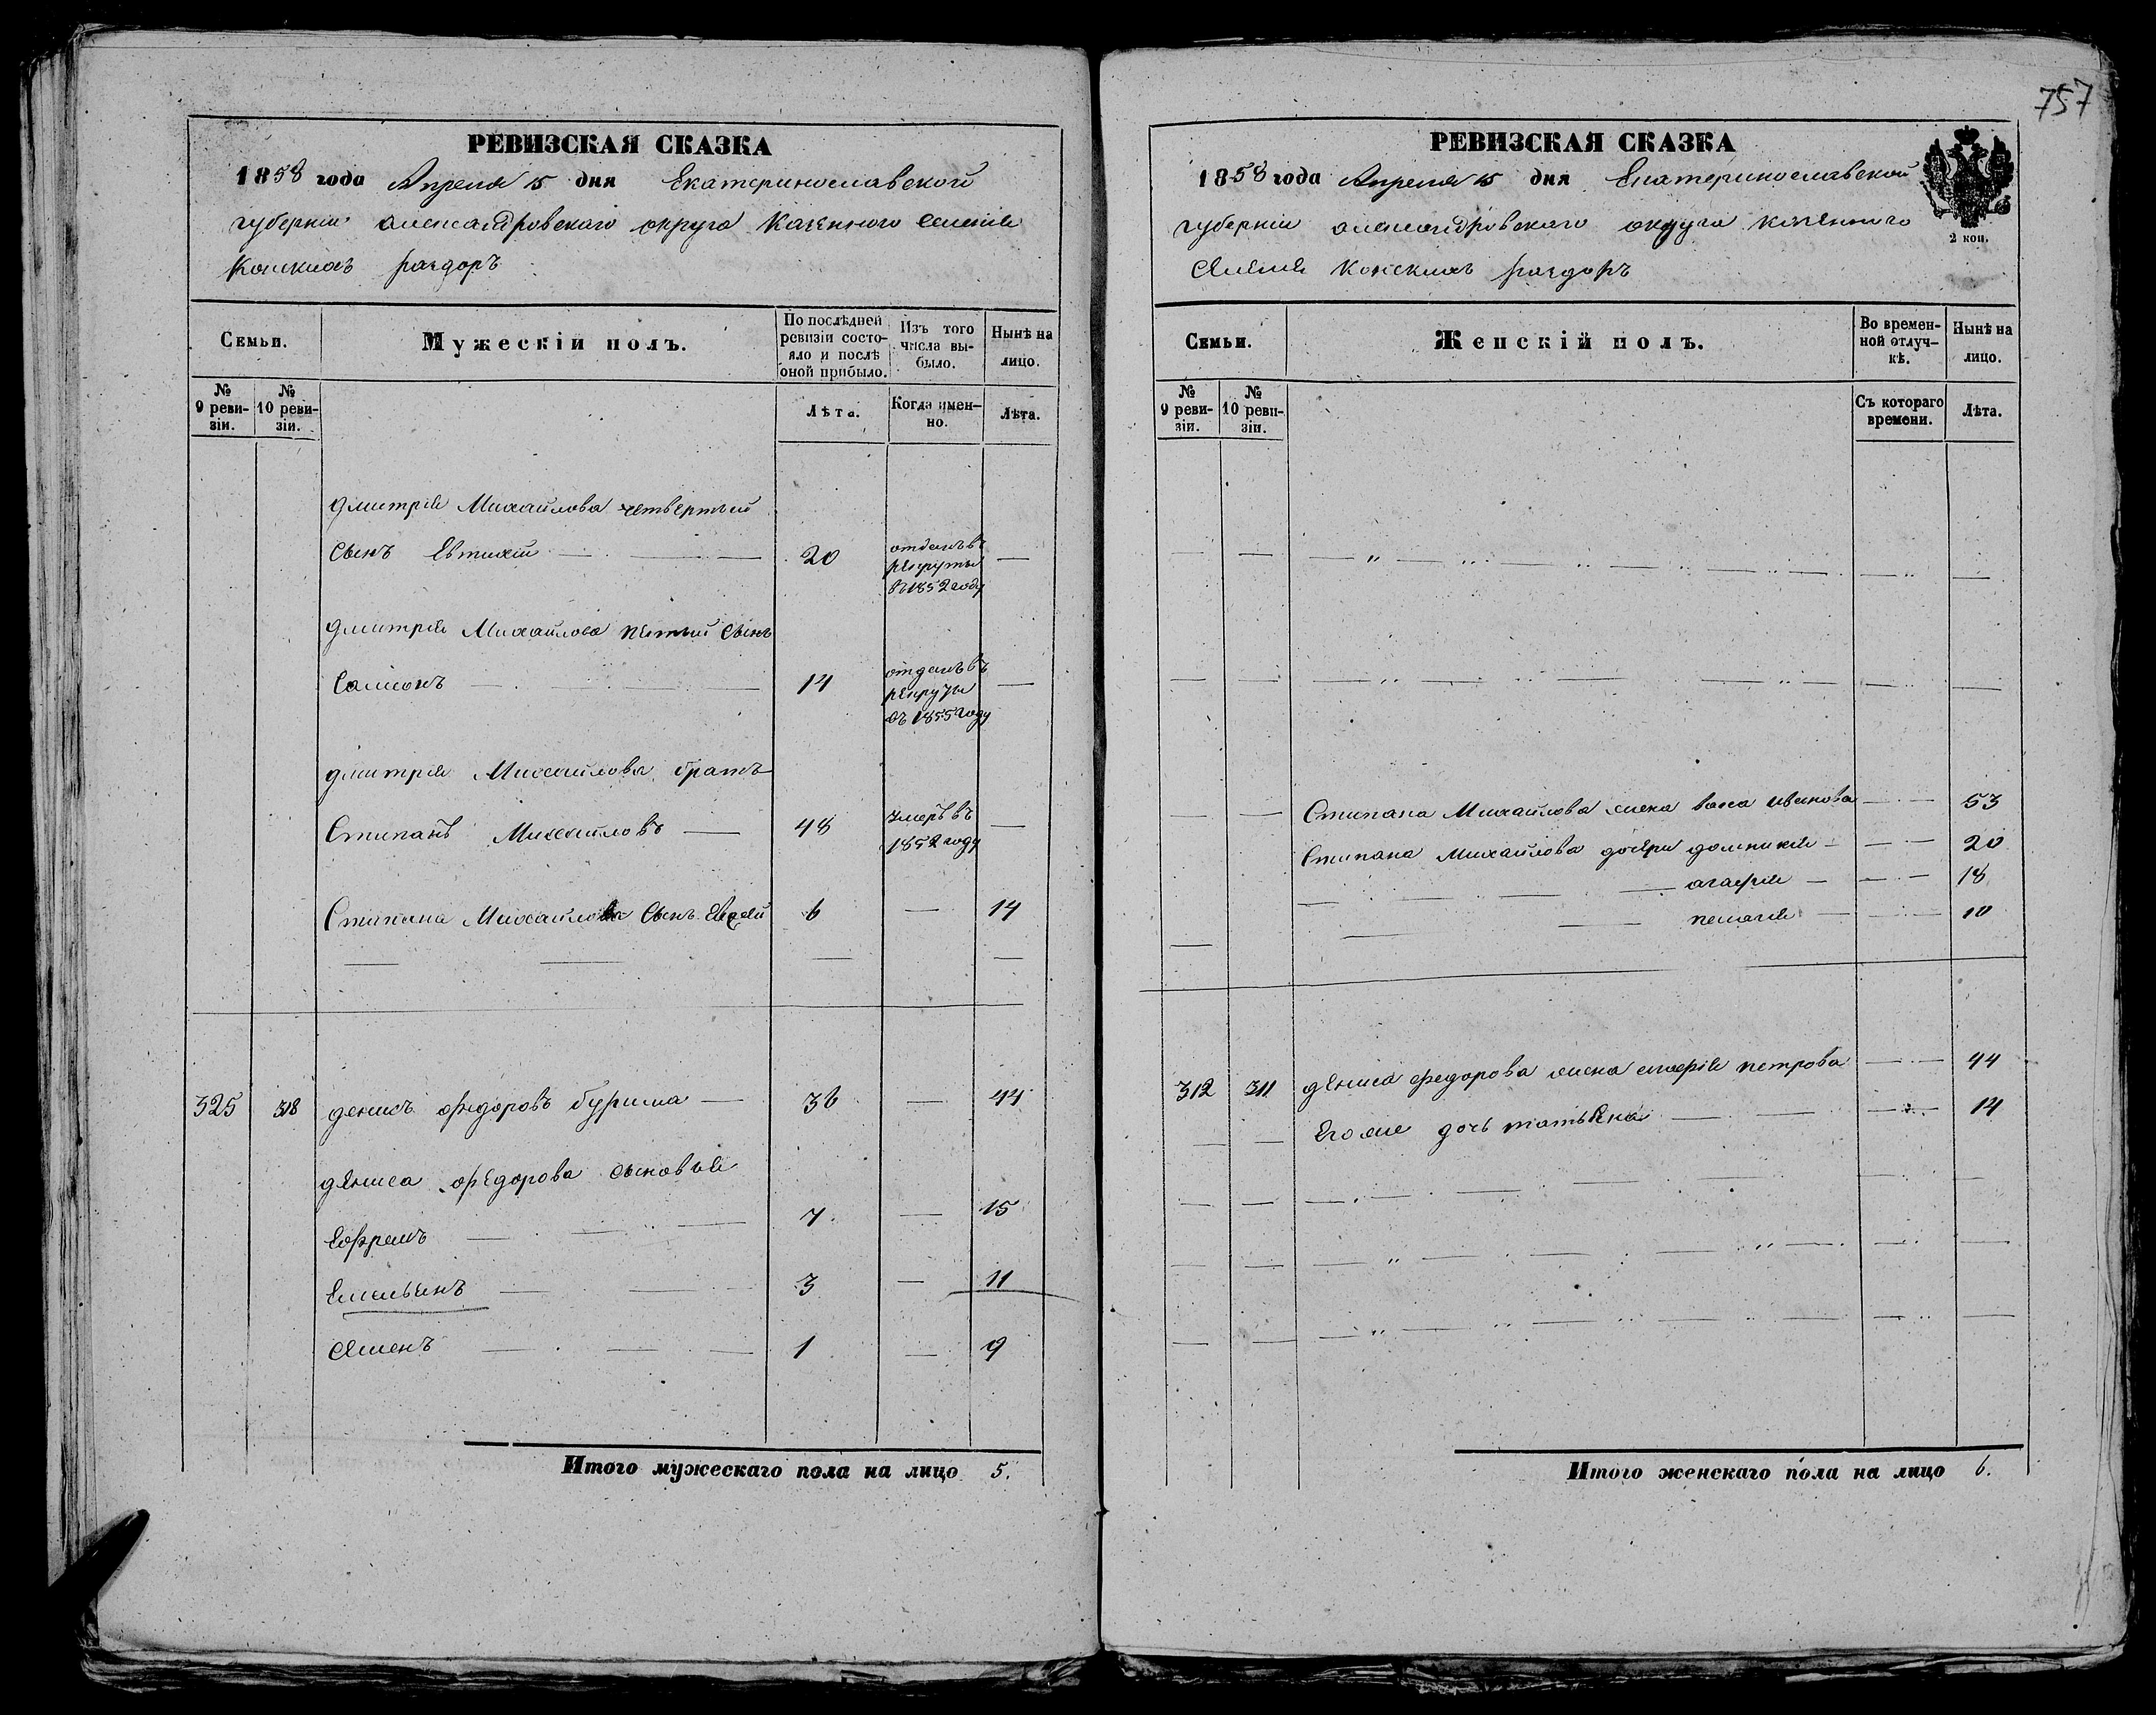 РЕВИЗСКАЯ СКАЗКА
1858 года Апреля 15 дня Екатеринославской
губернии александровскаго округа казенного селения
Конскихъ раздоръ
Семьи.
Мужескій полъ.
По послѣдней ревизіи состояло и послѣ оной прибыло.
Изъ того числа выбыло.
Нынѣ на лицо.
№ 9 ревизіи.
№ 10 ревизіи.
Лѣта.
Когда именно.
Лѣта.
дмитрія Михайлова четвертый
сынъ Евтихій — 20 отданъ въ рекруты въ 1852 году —
дмитрія Михайлова пятый сынъ
Самсонъ — 14 отданъ въ рекруты въ 1855 году —
дмитрія Михайлова братъ
Стипанъ Михайловъ — 48 умеръ въ 1852 году —
Стипана Михайлова сынъ Евсей 6 — 14
325 318 денисъ федоровъ бурима — 36 — 44
дениса федорова сыновья
Ефремъ — 7 — 15
Емельянъ — 3 — 11
Семенъ — 1 — 9
Итого мужескаго пола на лицо 5.
757
РЕВИЗСКАЯ СКАЗКА
1858 года Апреля 15 дня Екатеринославской
губернии александровскаго округа казенного
селения Конскихъ раздоръ
2 коп.
Семьи.
Женскій полъ.
Во временной отлучкѣ.
Нынѣ на лицо.
№ 9 ревизіи.
№ 10 ревизіи.
Съ котораго времени.
Лѣта.
Стипана Михайлова жена васа иванова — 53
Стипана Михайлова дочери домникия — 20
агафия — 18
пелагия — 10
312 311 дениса федорова жена петрова — 44
Его же дочь татьяна — 14
Итого женскаго пола на лицо 6.